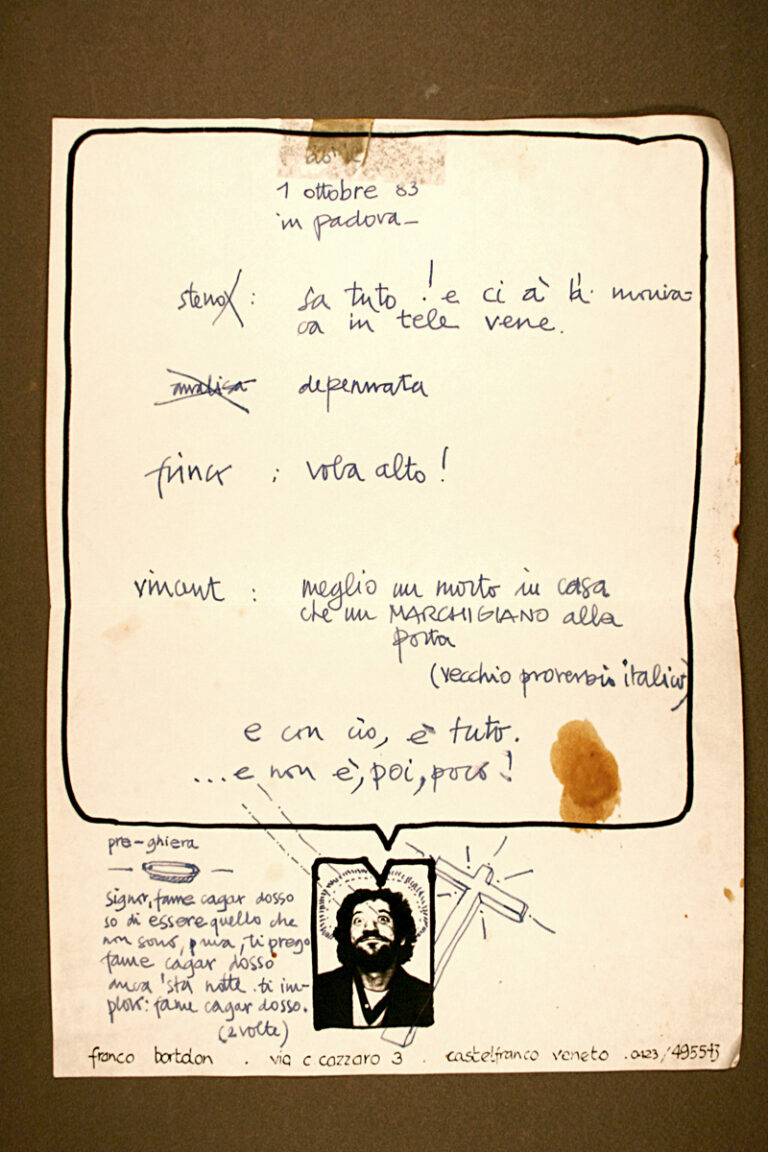 1 ottobre 83
in padova_
steno : sa tuto ! e ci à la
ca in tele vene.
analisa depennata
: vola alto !
: meglio un morto in casa
che un MARCHIGIANO alla
porta
(vecchio proverbio italico)
e con ciò, è tuto.
...e non è, poi, poco !
pre-ghiera
Signor, fame cagar dosso
so di essere quello che
non sono, ma, ti prego
fame cagar dosso
anca 'sta notte. ti im-
ploro: fame cagar dosso.
(2 volte)
franco bortolon . via c cazzaro 3 . castelfranco veneto . 0423/495543